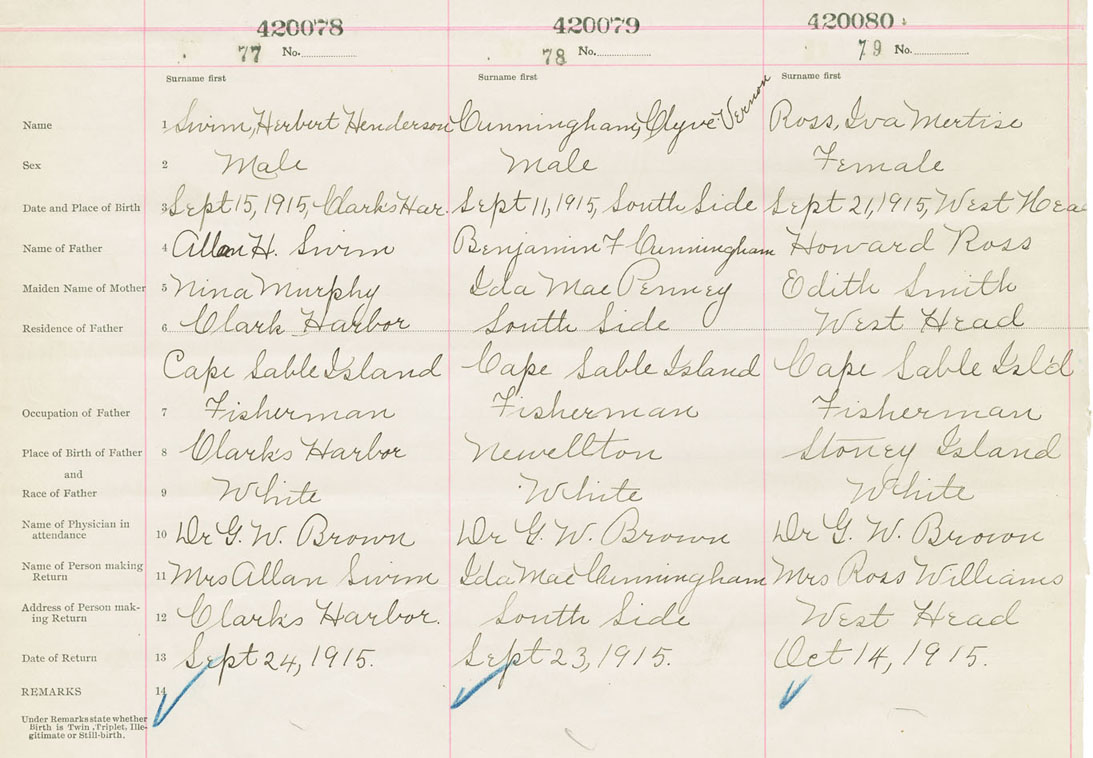 420078 420079 420080
77 No. 78 No. 79 No.
Surname first Surname first Surname first
Name 1 Swim, Herbert Henderson Cunningham, Clyve Vernon Ross, Iva Mertise
Sex 2 Male Male Female
Date and Place of Birth 3 Sept 15, 1915, Clarks Har. Sept 11, 1915, South Side Sept 21, 1915, West Hea
Name of Father 4 Allan H. Swim Benjamin F Cunningham Howard Ross
Maiden Name of Mother 5 Nina Murphy Ida Mae Penney Edith Smith
Residence of Father 6 Clark Harbor South Side West Head
Cape Sable Island Cape Sable Island Cape Sable Isl'd
Occupation of Father 7 Fisherman Fisherman Fisherman
Place of Birth of Father 8 Clarks Harbor Newellton Stoney Island
and
Race of Father 9 White White White
Name of Physician in
attendance 10 Dr G. W. Brown Dr G. W. Brown Dr G. W. Brown
Name of Person making
Return 11 Mrs Allan Swim Ida Mae Cunningham Mrs Ross Williams
Address of Person mak-
ing Return 12 Clarks Harbor. South Side West Head
Date of Return 13 Sept 24, 1915. Sept 23, 1915. Oct 14, 1915.
REMARKS 14
Under Remarks state whether
Birth is Twin, Triplet, Ille-
gitimate or Still-birth.